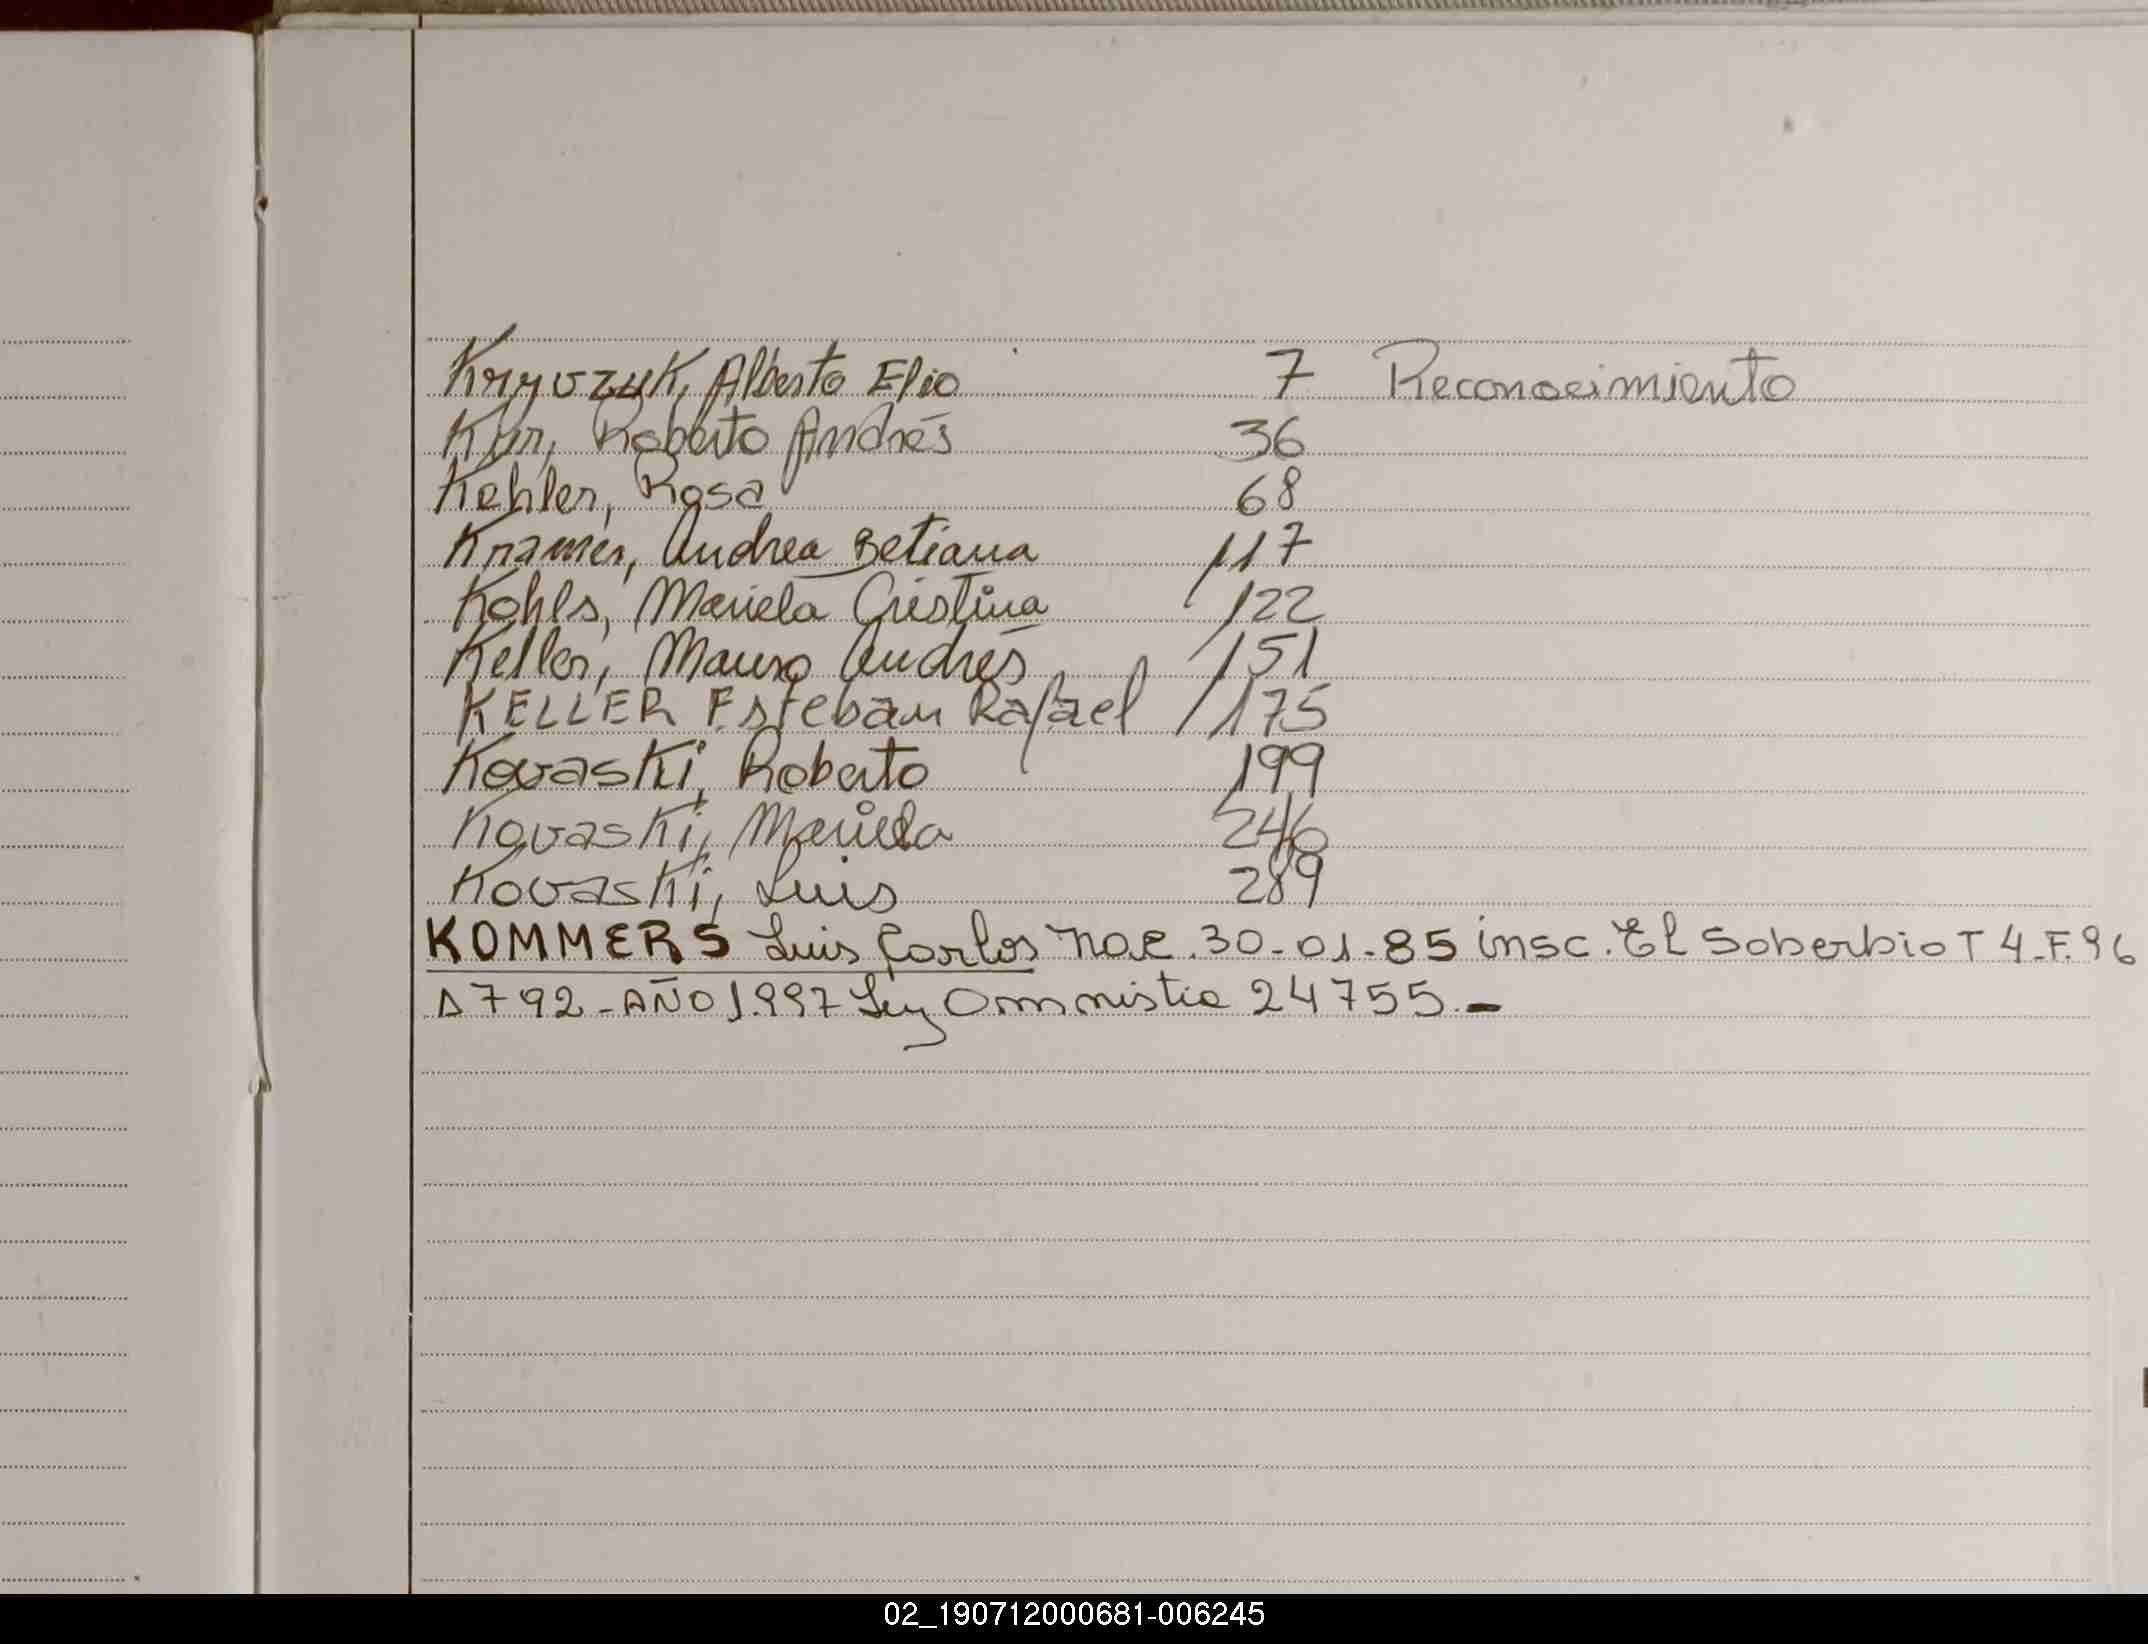 Kryvzuk, Alberto Elio 7 Reconocimiento
Kur, Roberto Andrés 36
Kehler, Rosa 68
Kramer, Andrea Betiana 117
Kohls, Mariela Cristina 122
Keller, Mauro Andrés 151
KELLER Esteban Rafael 175
Kovaski, Roberto 199
Kovaski, Mariela 246
Kovaski, Luis 289
KOMMERS Luis Carlos nac. 30-01-85 insc. El Soberbio T 4-F.96
A 792-AÑO 1.997 Ley Ommistia 24755.-
02_190712000681-006245